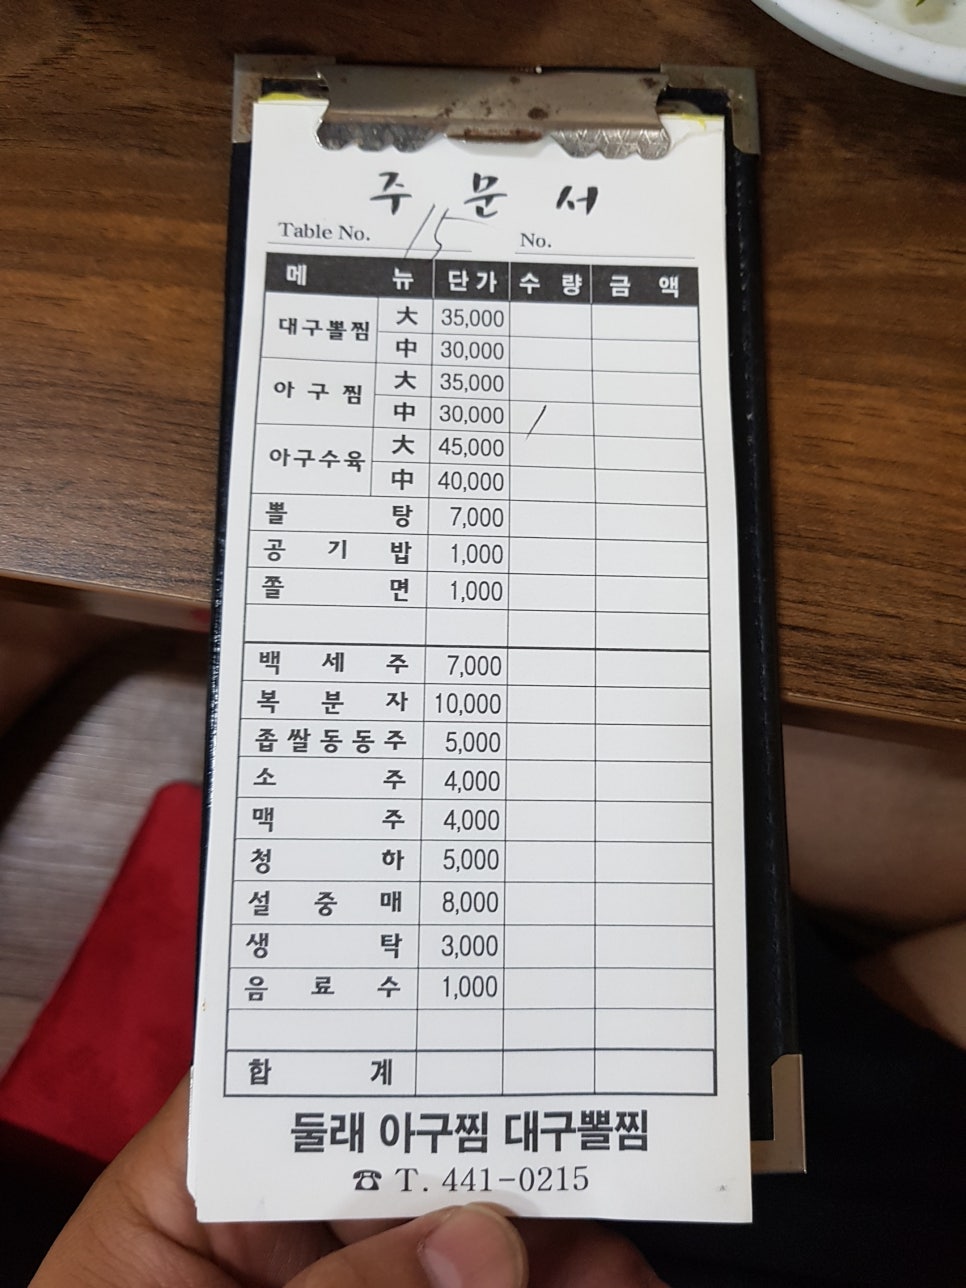 주 문 서
Table No. 15 No.
메 뉴 단가 수 량 금 액
대구뽈찜 大 35,000
中 30,000
아 구 찜 大 35,000
中 30,000 /
아구수육 大 45,000
中 40,000
뽈 탕 7,000
공 기 밥 1,000
쫄 면 1,000
백 세 주 7,000
복 분 자 10,000
좁쌀동동주 5,000
소 주 4,000
맥 주 4,000
청 하 5,000
설 중 매 8,000
생 탁 3,000
음 료 수 1,000
합 계
둘래 아구찜 대구뽈찜
☎ T. 441-0215